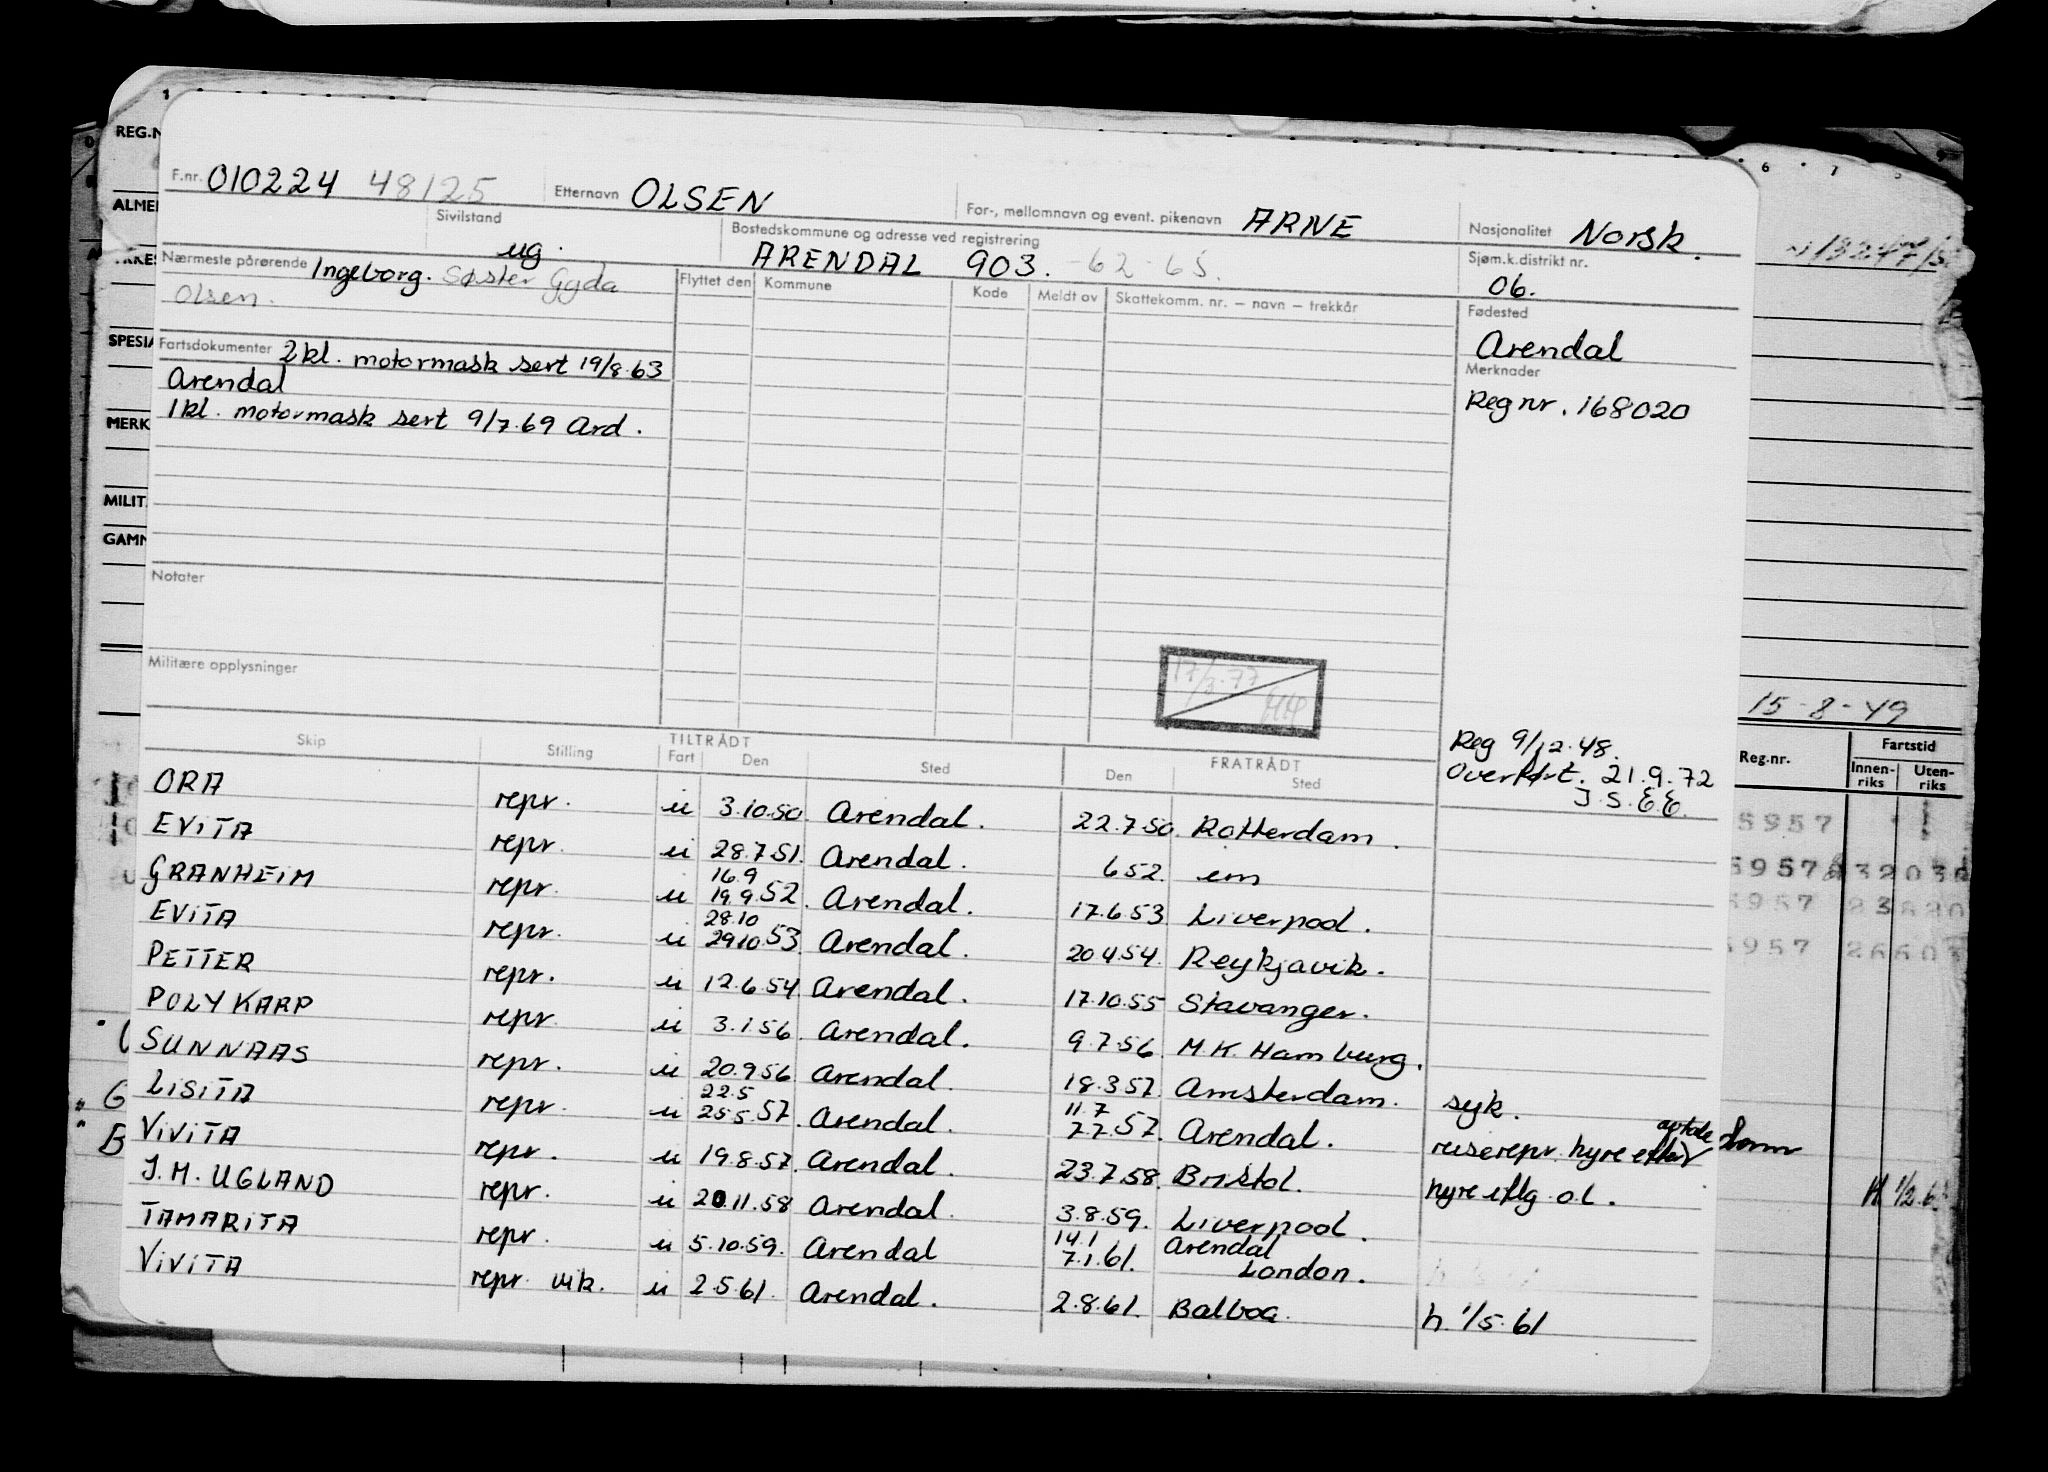 REG.N
ALMEN
SPESIA
MERK
MILIT
GAMN
F.nr. 010224 48125 Etternavn OLSEN For-, mellomnavn og event. pikenavn ARNE Nasjonalitet Norsk.
Sivilstand ug. Bostedskommune og adresse ved registrering ARENDAL 903. -62-65. Sjøm.k.distrikt nr. 06.
Nærmeste pårørende Ingeborg. Søster Gyda
Olsen.
Flyttet den Kommune Kode Meldt av Skattekomm. nr. — navn — trekkår
Fødested
Arendal
Fartsdokumenter 2kl. motormask sert 19/8.63
Arendal
1kl. motormask sert 9/7.69 Ard.
Merknader
Reg nr. 168020
Notater
Militære opplysninger
17/3.77
15-8-49
Reg 9/12.48.
Overført. 21.9.72
J.S.E.E.
Skip Stilling TILTRÅDT Fart Den Sted FRATRÅDT Den Sted
Reg.nr. Fartstid
Innen-riks Uten-riks
ORA repr. u 3.10.50 Arendal. 22.7.50. Rotterdam.
EVITA repr. u 28.7.51. Arendal. 6 52. em
GRANHEIM repr. u 16.9 19.9.52. Arendal. 17.6.53 Liverpool.
EVITA repr. u 28.10 29.10.53. Arendal. 20.4.54. Reykjavik.
PETTER repr. u 12.6.54 Arendal. 17.10.55 Stavanger.
POLYKARP repr. u 3.1.56 Arendal. 9.7.56. M.K. Hamburg.
SUNNAAS repr. u 20.9.56 Arendal. 18.3.57. Amsterdam. syk.
LISITA repr. u 22.5 25.5.57. Arendal. 11.7 7.7.57. Arendal. reiserepr. hyre etter avtale
VIVITA repr. u 19.8.57. Arendal. 23.7.58. Bristol. hyre iflg. o.l.
J.M. UGLAND repr. u 20.11.58 Arendal. 3.8.59. Liverpool.
TAMARITA repr. u 5.10.59. Arendal 14.1 7.1.61. Arendal London.
VIVITA repr. vik. u 2.5.61. Arendal. 2.8.61. Balboa. h. 1/5.61